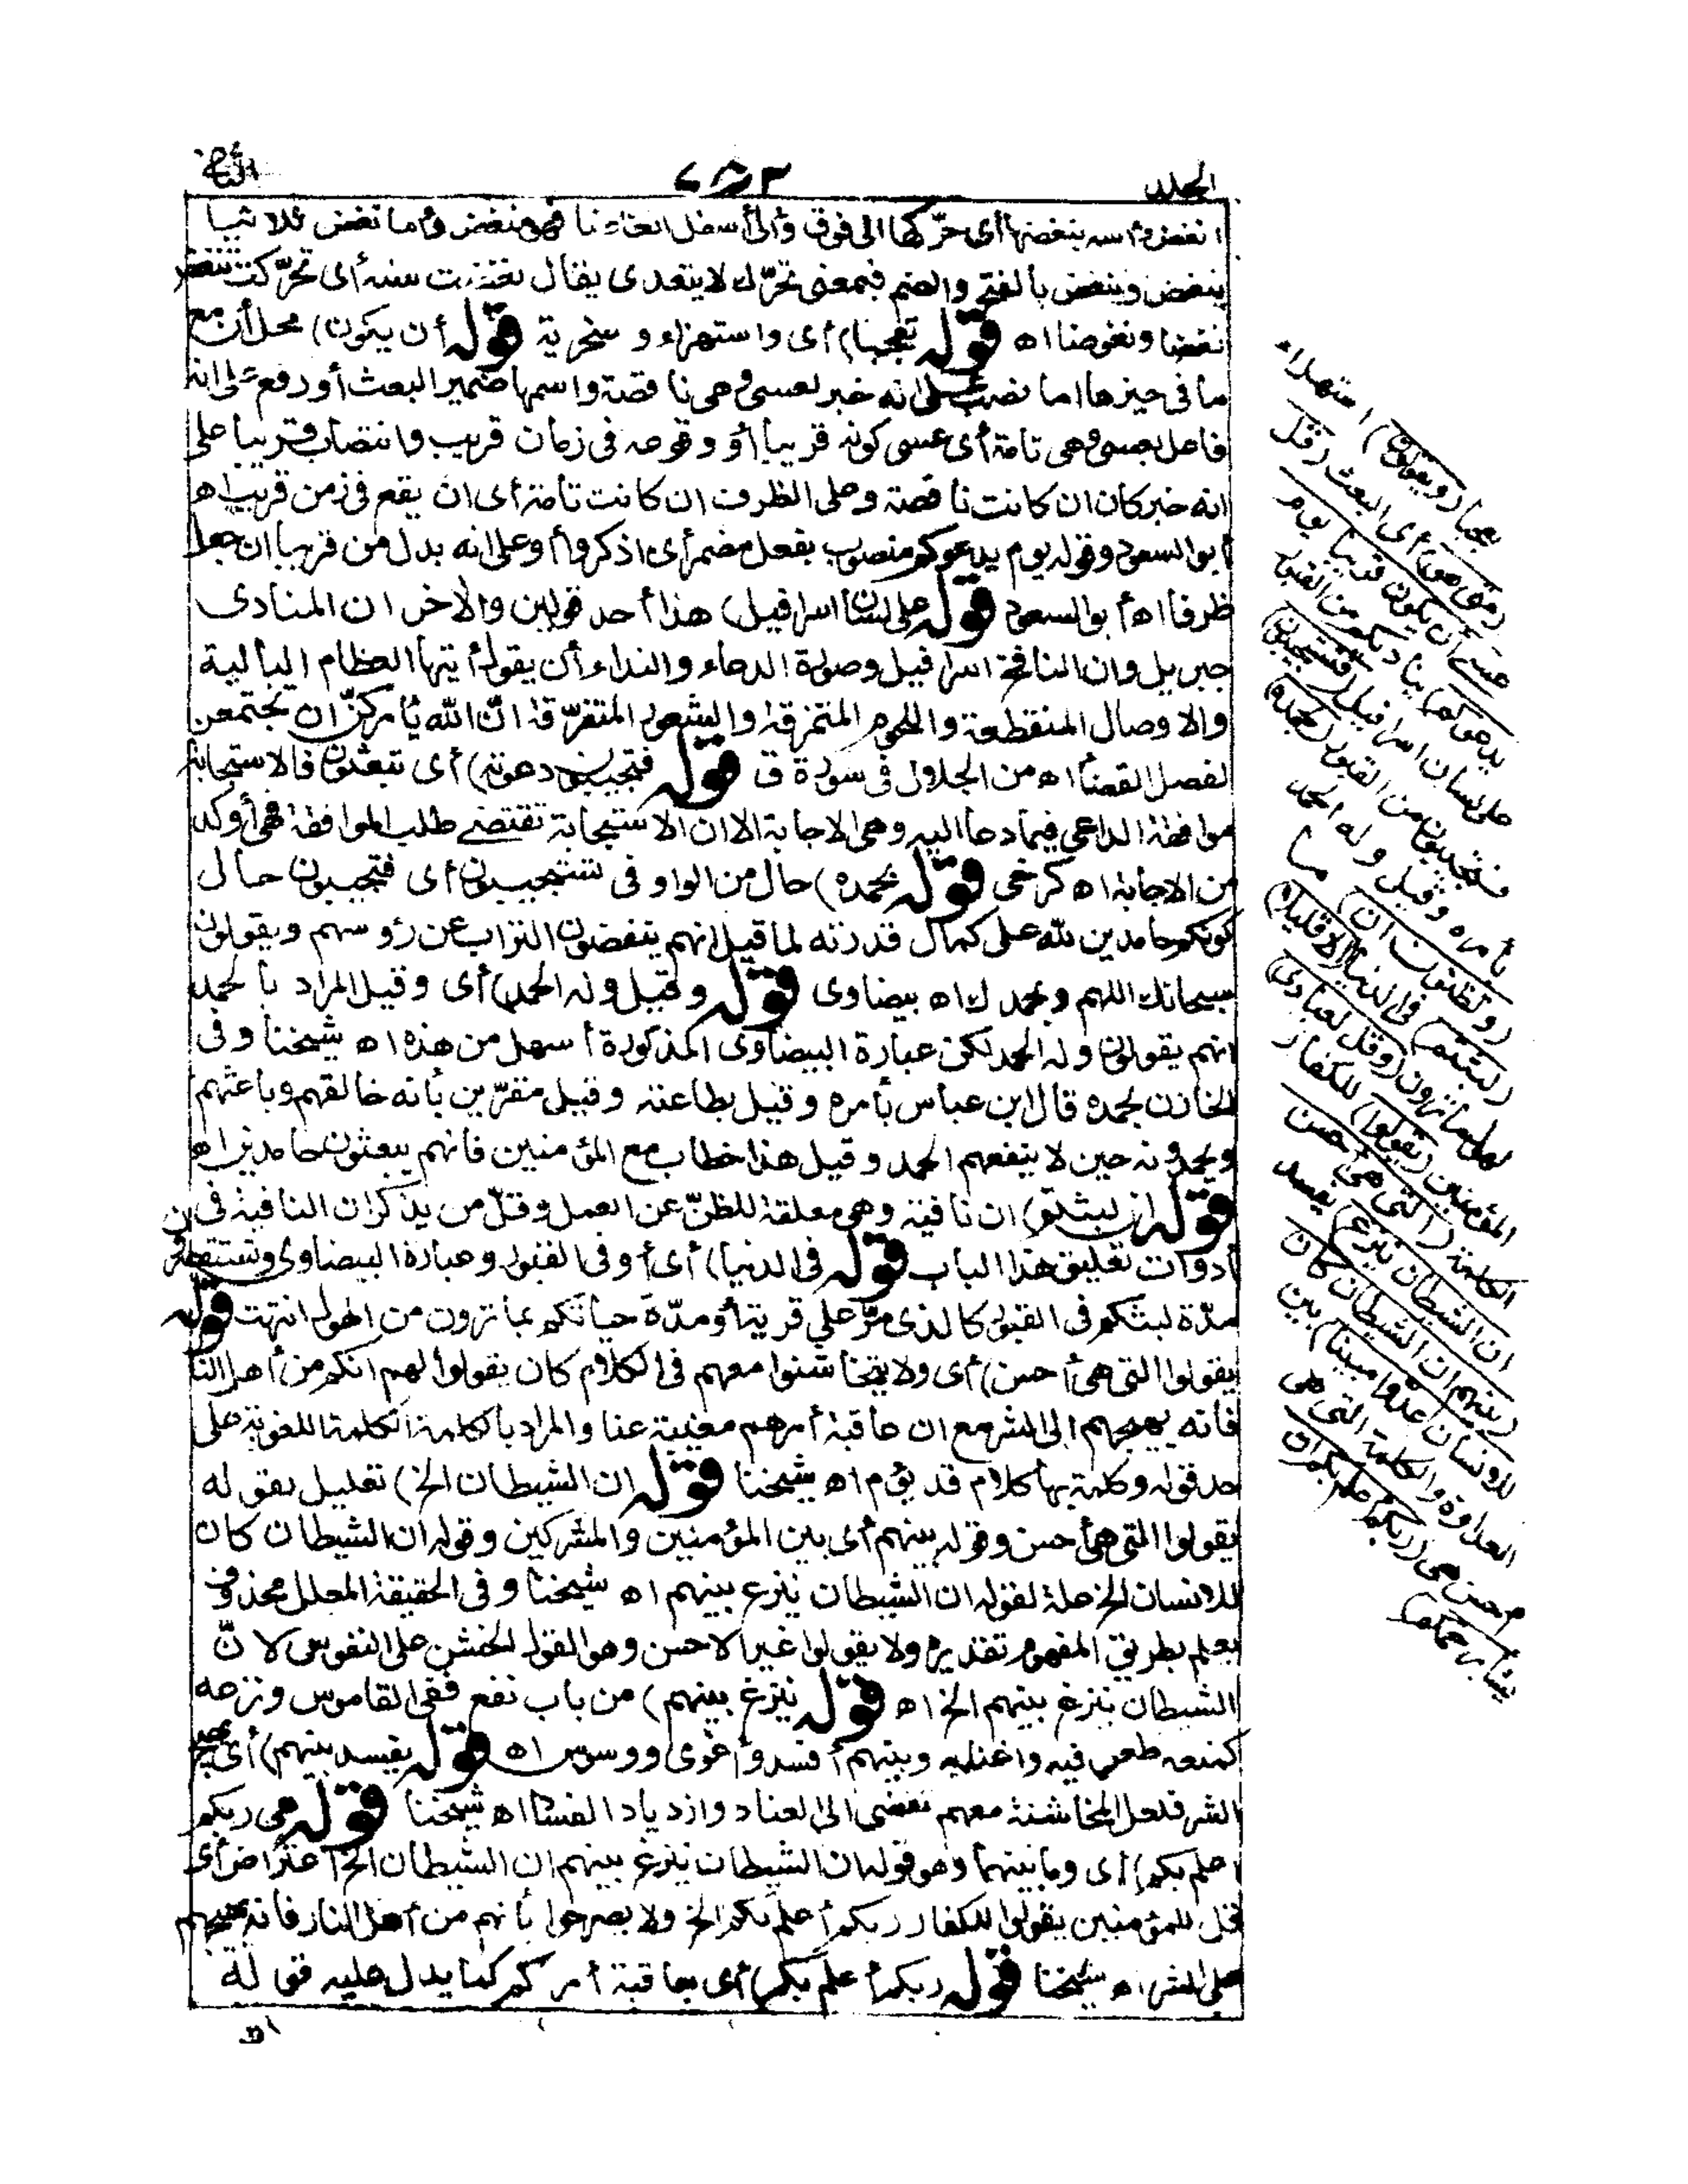 الجلد
٧٥٣
الثانى
انغض رأسه ينغضها أى حرّكها الى فوق والى أسفل انغاضا فهو منغض وأما نغض ثلاثيا
ينغض وينغض بالفتح والضم فبمعنى تحرّك لا يتعدى يقال نغضت سنه أى تحرّكت تنغض
نغضا ونغوضا اه قوله تعجبا) أى واستهزاء و سخرية قوله أن يكون) محل أن مع
ما فى حيزها اما نصب على انه خبر لعسى وهى ناقصة واسمها ضمير البعث أو رفع على انه
فاعل بعسى وهى تامة أى عسى كونه قريبا أو وقوعه فى زمان قريب وانتصاب قريبا على
انه خبر كان ان كانت ناقصة وعلى الظرف ان كانت تامة أى ان يقع فى زمن قريب اه
أبو السعود وقوله يوم يدعوكم منصوب بفعل مضمر أى اذكروا أو على انه بدل من قريبا ان جعل
ظرفا اه أبو السعود قوله على لسان اسرافيل) هذا أحد قولين والاخر ان المنادى
جبريل وان النافخ اسرافيل وصورة الدعاء والنداء أن يقول أيتها العظام البالية
والاوصال المنقطعة واللحوم المتمزقة والشعور المتفرّقة انّ الله يأمركنّ ان تجتمعن
لفصل القضاء اه من الجلال فى سورة ق قوله فتجيبون دعوته) أى تبعثون فالاستجابة
موافقة الداعى فيما دعا اليه وهى الاجابة الا ان الاستجابة تقتضى طلب الموافقة فهى أوكد
من الاجابة اه كرخى قوله بحمده) حال من الواو فى تستجيبون أى فتجيبون حال
كونكم حامدين لله على كمال قدرته لما قيل انهم ينفضون التراب عن رؤسهم ويقولون
سبحانك اللهم وبحمدك اه بيضاوى قوله وقيل وله الحمد) أى وقيل المراد بالحمد
انهم يقولون وله الحمد لكن عبارة البيضاوى المذكورة أسهل من هذه اه شيخنا وفى
الخازن بحمده قال ابن عباس بأمره وقيل بطاعته وقيل مقرّين بأنه خالقهم وباعثهم
ويحمدونه حين لا ينفعهم الحمد وقيل هذا خطاب مع المؤمنين فانهم يبعثون حامدين اه
قوله ان لبثتم) ان نافية وهى معلقة للظنّ عن العمل وقلّ من يذكر ان النافية فى
أدوات تعليق هذا الباب قوله فى الدنيا) أى أو فى القبور وعبارة البيضاوى وتستقصرون
مدّة لبثكم فى القبور كالذى مرّ على قرية أو مدّة حياتكم بما ترون من الهول انتهت قوله
يقولوا التى هى أحسن) أى ولا يتخاشنوا معهم فى الكلام كان يقولوا لهم انكم من أهل النار
فانه يهيجهم الى الشر مع ان عاقبة أمرهم مغيبة عنا والمراد بالكلمة الكلمة اللغوية على
حد قوله وكلمة بها كلام قد يؤم اه شيخنا قوله ان الشيطان الخ) تعليل بقوله
يقولوا التى هى أحسن وقوله بينهم أى بين المؤمنين والمشركين وقوله ان الشيطان كان
للانسان الخ علة لقوله ان الشيطان ينزغ بينهم اه شيخنا وفى الحقيقة المعلل محذوف
يعلم بطريق المفهوم تقديره ولا يقولوا غير الاحسن وهو القول الخشن على النفوس لانّ
الشيطان ينزغ بينهم الخ اه قوله ينزغ بينهم) من باب نفع ففى القاموس ونزغه
كمنعه طعن فيه واغتابه وبينهم أفسد وأغوى ووسوس اه قوله يفسد بينهم) أى يهيج
الشر فلعل المخاشنة معهم تفضى الى العناد وازدياد الفساد اه شيخنا قوله هى ربكم
أعلم بكم) أى وما بينهما وهو قوله ان الشيطان ينزغ بينهم ان الشيطان الخ اعتراض أى
قل للمؤمنين يقولوا للكفار ربكم أعلم بكم الخ ولا يصرحوا بأنهم من أهل النار فانه يهيجهم
على الشر اه شيخنا قوله ربكم أعلم بكم) أى بعاقبة أمركم كما يدل عليه قوله
تعجبا (ويقولون) استهزاء
(متى هو) أى البعث (قل
عسى أن يكون قريبا يوم
يدعوكم) يناديكم من القبور
على لسان اسرافيل (فتستجيبون)
فتجيبون من القبور (بحمده)
بأمره وقيل وله الحمد
(وتظنون ان) ما
(لبثتم) فى الدنيا (الا قليلا)
لهول ما ترون (وقل لعبادى)
المؤمنين (يقولوا) للكفار
الكلمة (التى هى أحسن
ان الشيطان ينزغ) يفسد
(بينهم ان الشيطان كان
للانسان عدوا مبينا) بين
العداوة والكلمة التى هى
أحسن هى (ربكم أعلم بكم ان
يشأ يرحمكم)